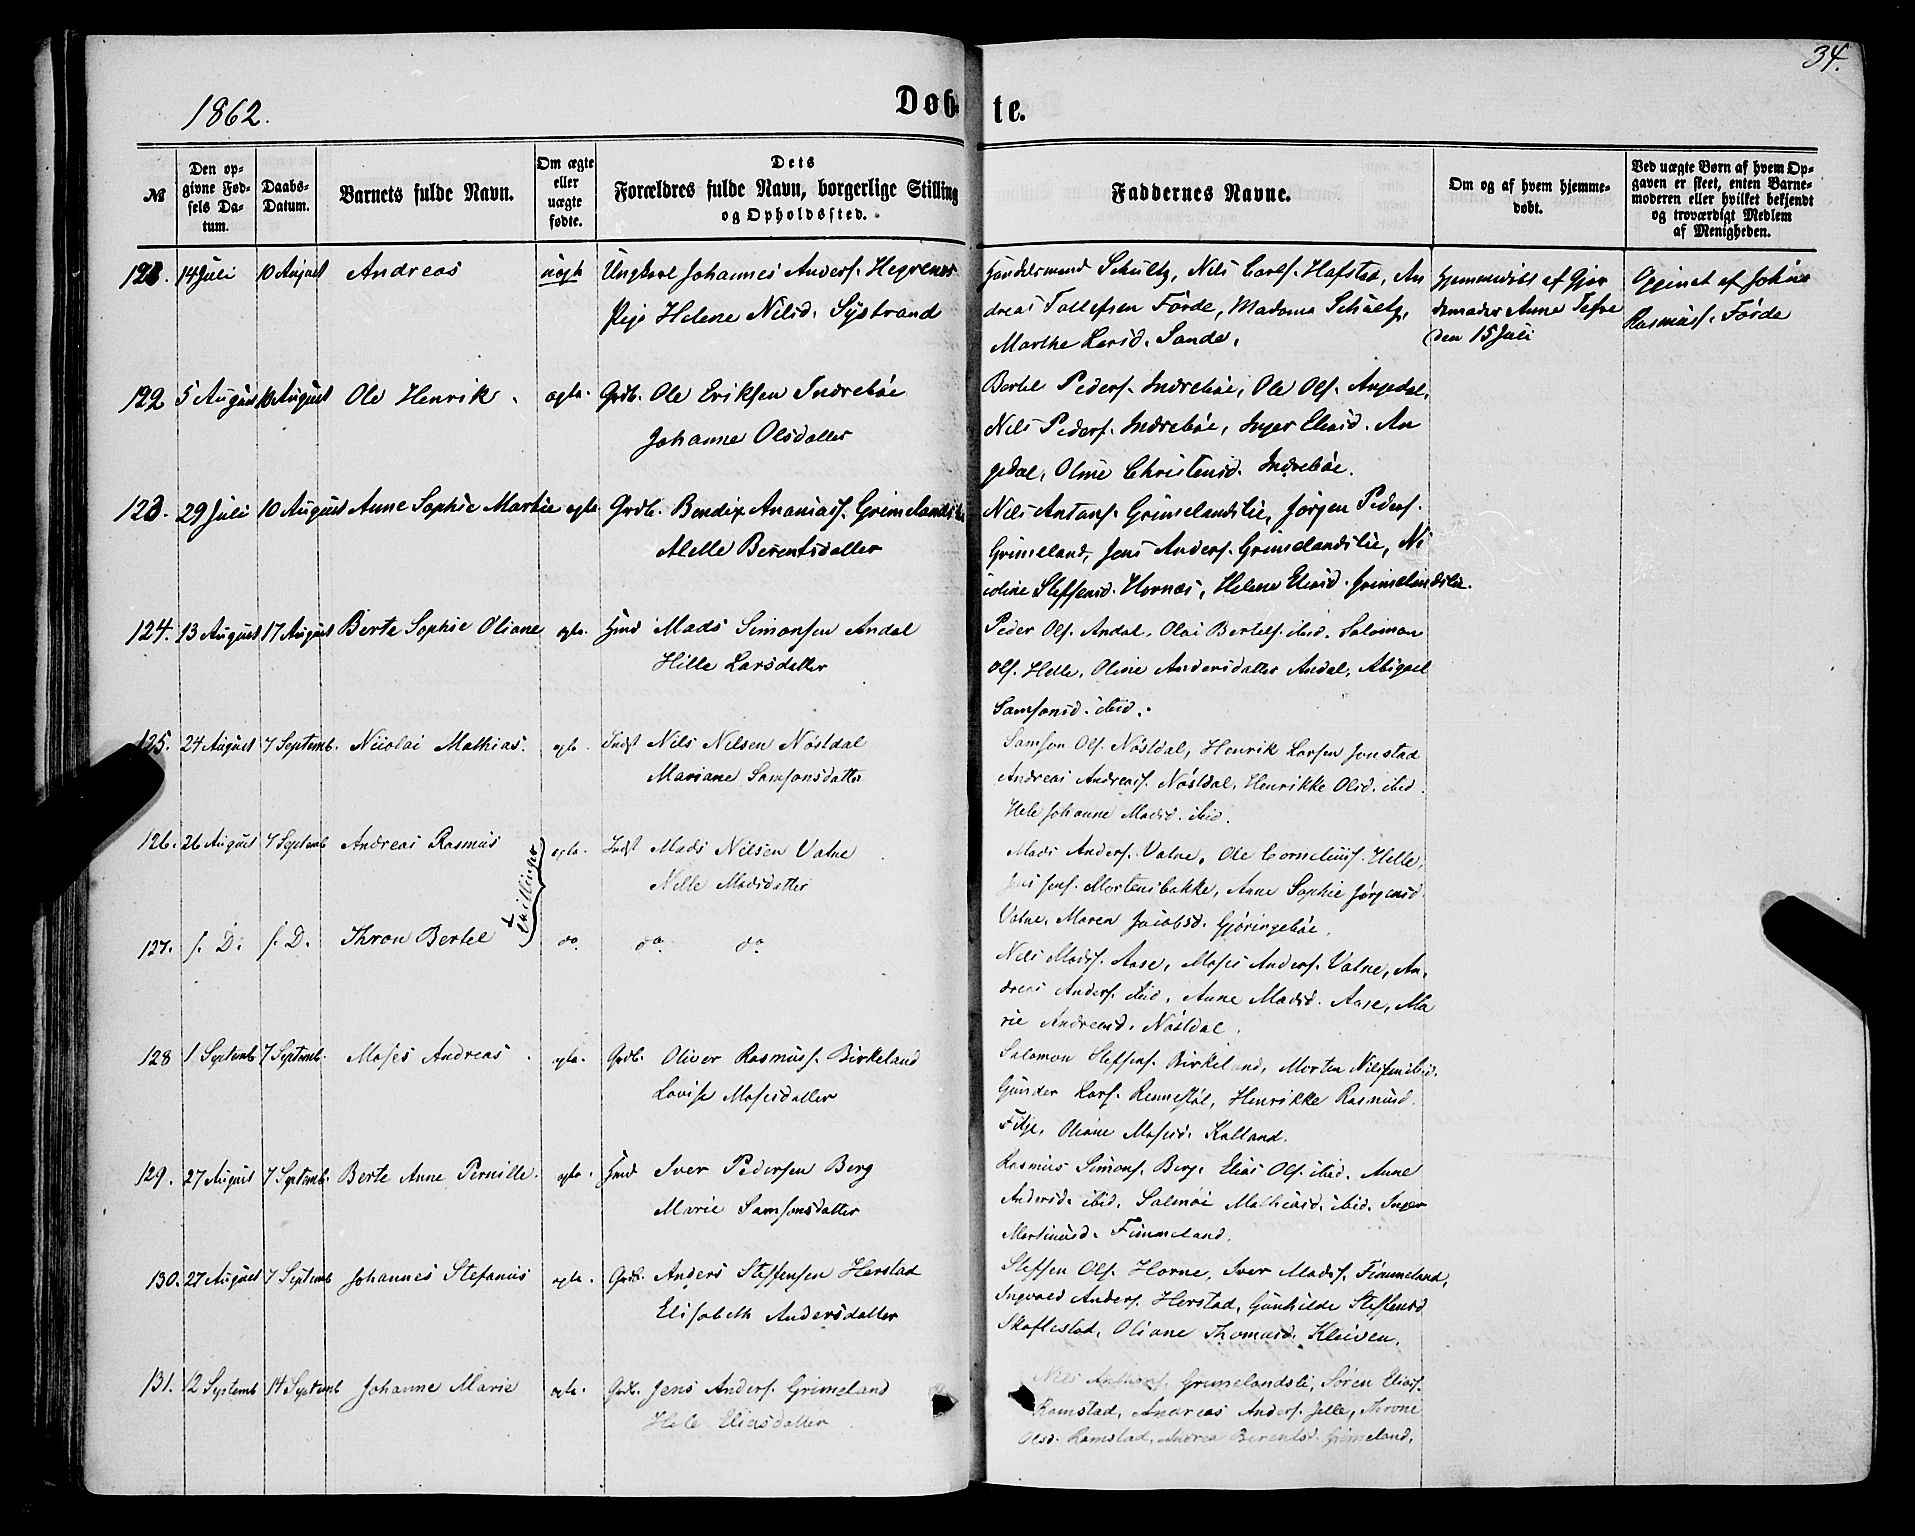 34.
1862.
Døb-te.
№
Den opgivne Fødsels Datum.
Daabs-Datum.
Barnets fulde Navn.
Om ægte eller uægte fødte.
Dets Forældres fulde Navn, borgerlige Stilling og Opholdssted.
Faddernes Navne.
Om og af hvem hjemmedøbt.
Ved uægte Børn af hvem Opgaven er skeet, enten Barnemoderen eller hvilket bekjendt og troværdigt Medlem af Menigheden.
14 Juli 10 August Andreas uægt Ungkarl Johannes Anders. Hegrenes
Pige Helene Nilsd. Systrand
Handelsmand Schultz, Nils Carls. Hafstad, An
dreas Tollefsen Førde, Madama Schultz,
Marthe Larsd. Sande.
Hjemmedøbt af Gjor
demoder Anne Tefre
den 15 Juli
Opgivet af Johan
Rasmus. Førde
122 5 August 10 August Ole Henrik ægte. Grdb. Ole Eriksen Indrebøe
Johanne Olsdatter
Bertel Peders. Indrebøe, Ole Ols. Angedal,
Nils Peders. Indrebøe, Inger Eliasd. An
gedal, Oline Christensd. Indrebøe.
123. 29 Juli 10 August Anne Sophie Martie ægte Grdb. Bendix Ananiass. Grimelandslie
Alelle Berentsdatter
Nils Antons. Grimelandslie, Jørgen Peders.
Grimeland, Jens Anders. Grimelandslie, Ni
coline Steffensd. Hornæs, Helene Eliasd. Grimelandslie.
124. 13 August 17 August Berte Sophie Oliane ægte. Hmd Mads Simonsen Andal
Hille Larsdatter
Peder Ols. Andal, Olai Bertels. ibid. Salomon
Ols. Helle, Oline Andersdatter Andal, Abigael
Samsonsd. ibid.
125. 24 August 7 Septemb. Nicolai Mathias. ægte. Indst Nils Nilsen Nøstdal
Mariane Samsonsdatter
Samson Ols. Nøstdal, Henrik Larsen Jonstad
Andreas Andreass. Nøstdal, Henrikke Olsd. ibid.
Hele Johanne Madsd. ibid.
126. 26 August 7 Septemb Andreas Rasmus ægte. Indst Mads Nilsen Valne
Nille Madsdatter
Tvillinger
Mads Anders. Valne, Ole Cornelius. Helle,
Jens Jens. Mortensbakke, Anne Sophie Jørgensd.
Valne, Maren Jacobsd. Gjøringebøe.
127. s. D. s. D. Thron Bertel do do do
Nils Mads. Aase, Moses Anders. Valne, An
dreas Anders. ibid, Anne Madsd. Aase, Ma
rie Andreasd. Nøstdal.
128 1 Septemb 7 Septemb. Moses Andreas ægte. Grdb. Oliver Rasmuss. Birkeland
Lovise Mosesdatter
Salomon Steffens. Birkeland, Morten Nilsen ibid.
Gunder Lars. Rennestøl, Henrikke Rasmusd.
Fitje, Oliane Mosesd. Kalland.
129. 27 August 7 Septemb. Berte Anne Pernille. ægte. Hmd Iver Pedersen Berg
Marie Samsonsdatter
Rasmus Simons. Berg, Elias Ols. ibid. Anne
Andersd. ibid, Salmøi Mathiasd. ibid. Inger
Martinusd. Fimmeland.
130. 27 August 7 Septemb Johannes Stefanus ægte. Grdb. Anders Steffensen Herstad
Elisabeth Andersdatter
Steffen Ols. Horne, Iver Mads. Fimmeland,
Ingvald Anders. Herstad, Gunhilde Steffensd
Skaflestad, Oliane Thomasd. Kleiven.
131. 12 Septemb 14 Septemb Johanne Marie ægte. Grdb. Jens Anders. Grimeland
Hele Eliasdatter
Nils Antons. Grimelandsli, Søren Eliass.
Ramstad, Andreas Anders. Helle, Throne
Olsd. Ramstad, Andrea Berentsd. Grimeland,